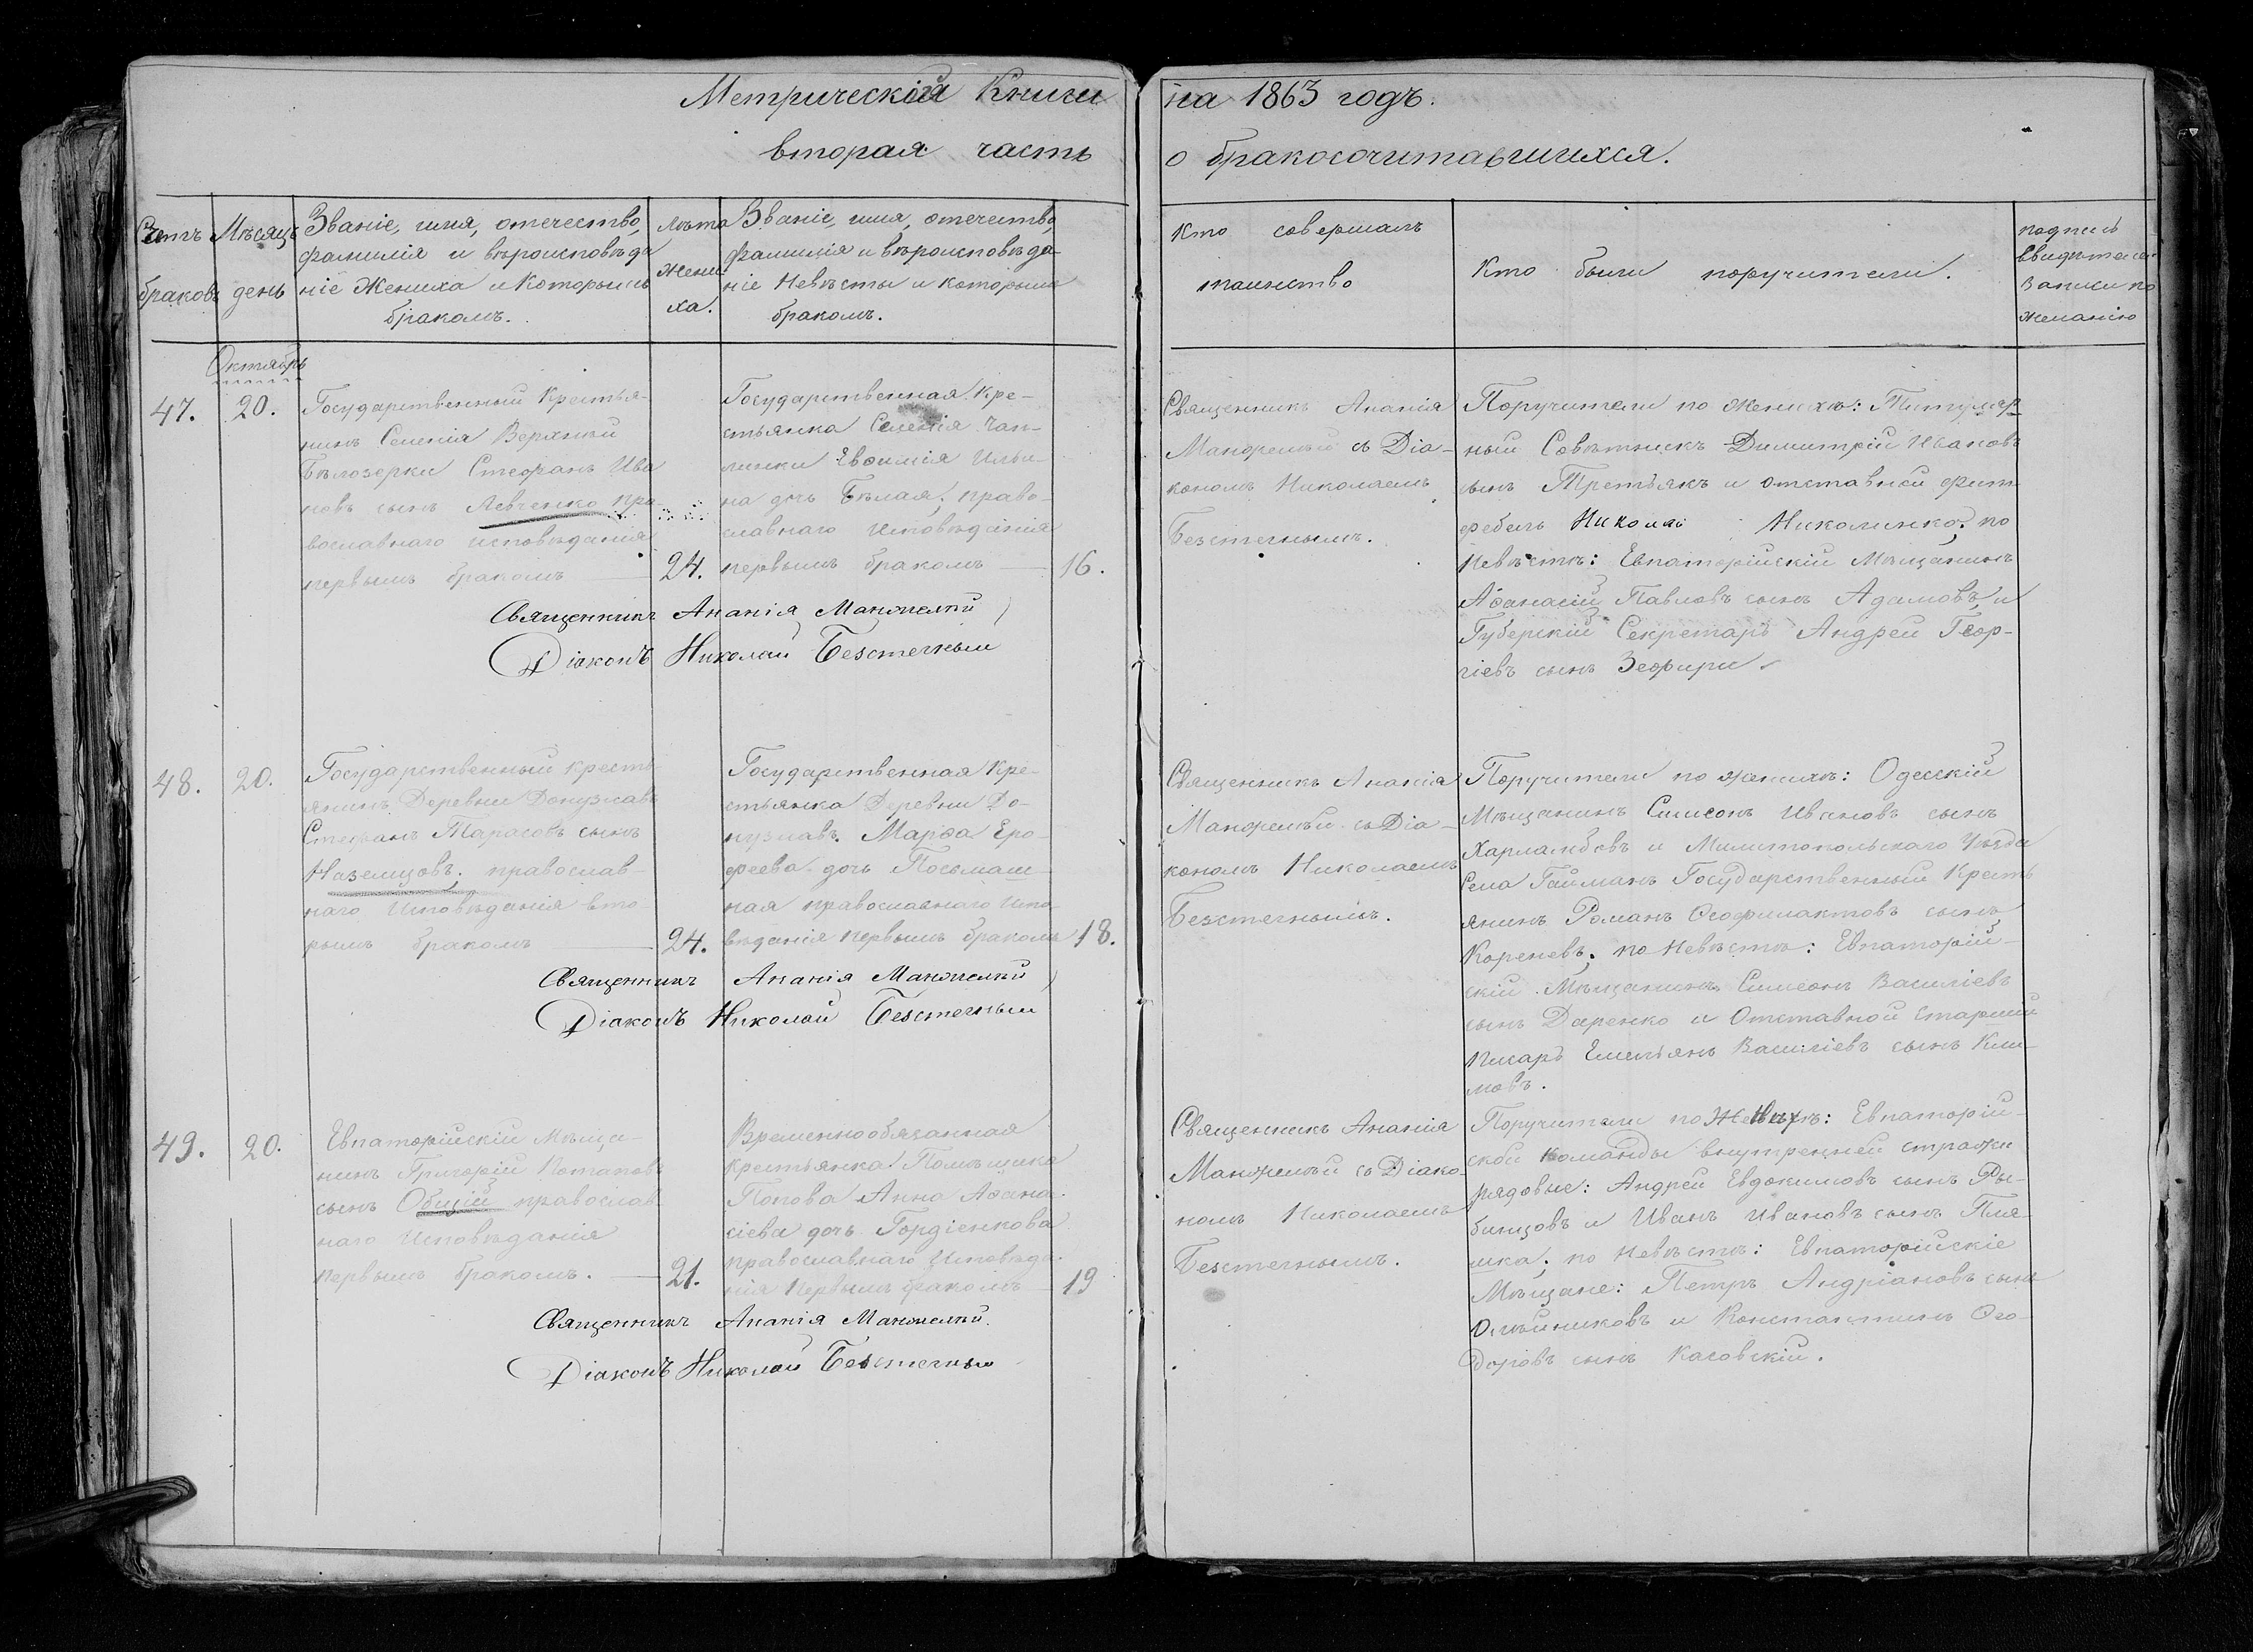 Метрической Книги на 1863 годъ.
вторая часть о бракосочитавшихся.
Счетъ браковъ
Мѣсяцъ день
Званіе, имя, отечество,
фамилія и вѣроисповѣда
ніе Жениха и Которымъ
бракомъ.
лѣта
жени-
ха.
Званіе, имя, отечество,
фамилія и вѣроисповѣда-
ніе Невѣсты и которымъ
бракомъ.
Кто совершалъ
таинство
Кто были поручители.
подпись
свидѣтелей
записи по
желанію
Октябрь
47. 20.
Государственный Крестья-
нинъ Селенія Верхней
Бѣлозерки Стефанъ Ива
новъ сынъ Левченко пра-
вославнаго исповѣданія
первымъ бракомъ — 24.
Государственная Кре-
стьянка Селенія Чап-
линки Евѳимія Ильи-
на дочь Бѣлая, право-
славнаго исповѣданія
первымъ бракомъ — 16.
Священникъ Ананія
Манжелей съ Діа-
кономъ Николаемъ
Безстегнымъ.
Поручители по Женихѣ: Титуляр-
ный Совѣтникъ Димитрій Ивановъ
сынъ Третьякъ и отставной фит
фебель Николай Николенко; по
Невѣстѣ: Евпаторійскій Мѣщанинъ
Аѳанасій Павловъ сынъ Адамовъ и
Губерскій Секретарь Андрей Геор-
гіевъ сынъ Зефири
Священникъ Ананія Манжелей
Діаконъ Николай Безстегный
48. 20.
Государственный кресть-
янинъ Деревни Донузлавъ
Стефанъ Тарасовъ сынъ
Наземцовъ, православ-
наго Исповѣданія вто-
рымъ бракомъ — 24.
Государственная Кре-
стьянка Деревни До-
нузлавъ Марѳа Еро-
феева дочь Посьмаш-
ная православнаго Испо-
вѣданія первымъ бракомъ 18.
Священникъ Ананія
Манжелей съ Діа-
кономъ Николаемъ
Безстегнымъ.
Поручители по женихѣ: Одесскій
Мѣщанинъ Симеонъ Ивановъ сынъ
Харламбовъ и Милитопольскаго Уѣзда
Села Гайманъ Государственный Кресть
янинъ Романъ Ѳеофилактовъ сынъ
Кореневъ, по Невѣстѣ: Евпаторій-
скій Мѣщанинъ Симеонъ Василіевъ
сынъ Даренко и Отставной старшій
Писарь Емельянъ Василіевъ сынъ Кли-
мовъ.
Священникъ Ананія Манжелей
Діаконъ Николай Безстегный
49. 20.
Евпаторійскій Мѣща-
нинъ Григорій Потаповъ
сынъ Общій православ-
наго Исповѣданія
первымъ бракомъ. — 21.
Временнообязанная
крестьянка Помѣщика
Попова Анна Аѳана-
сіева дочь Гордіенкова
православнаго Исповѣда-
нія первымъ бракомъ — 19
Священникъ Ананія
Манжелей съ Діако-
номъ Николаемъ
Безстегнымъ.
Поручители по Женихѣ: Евпаторій-
ской команды внутренней стражи
рядовые: Андрей Евдокимовъ сынъ Ры-
бинцовъ и Иванъ Ивановъ сынъ Пля-
шка; по Невѣстѣ: Евпаторійскіе
Мѣщане: Петръ Андріановъ сынъ
Олѣйниковъ и Константинъ Ѳео-
доровъ сынъ Касовскій.
Священникъ Ананія Манжелей.
Діаконъ Николай Безстегный